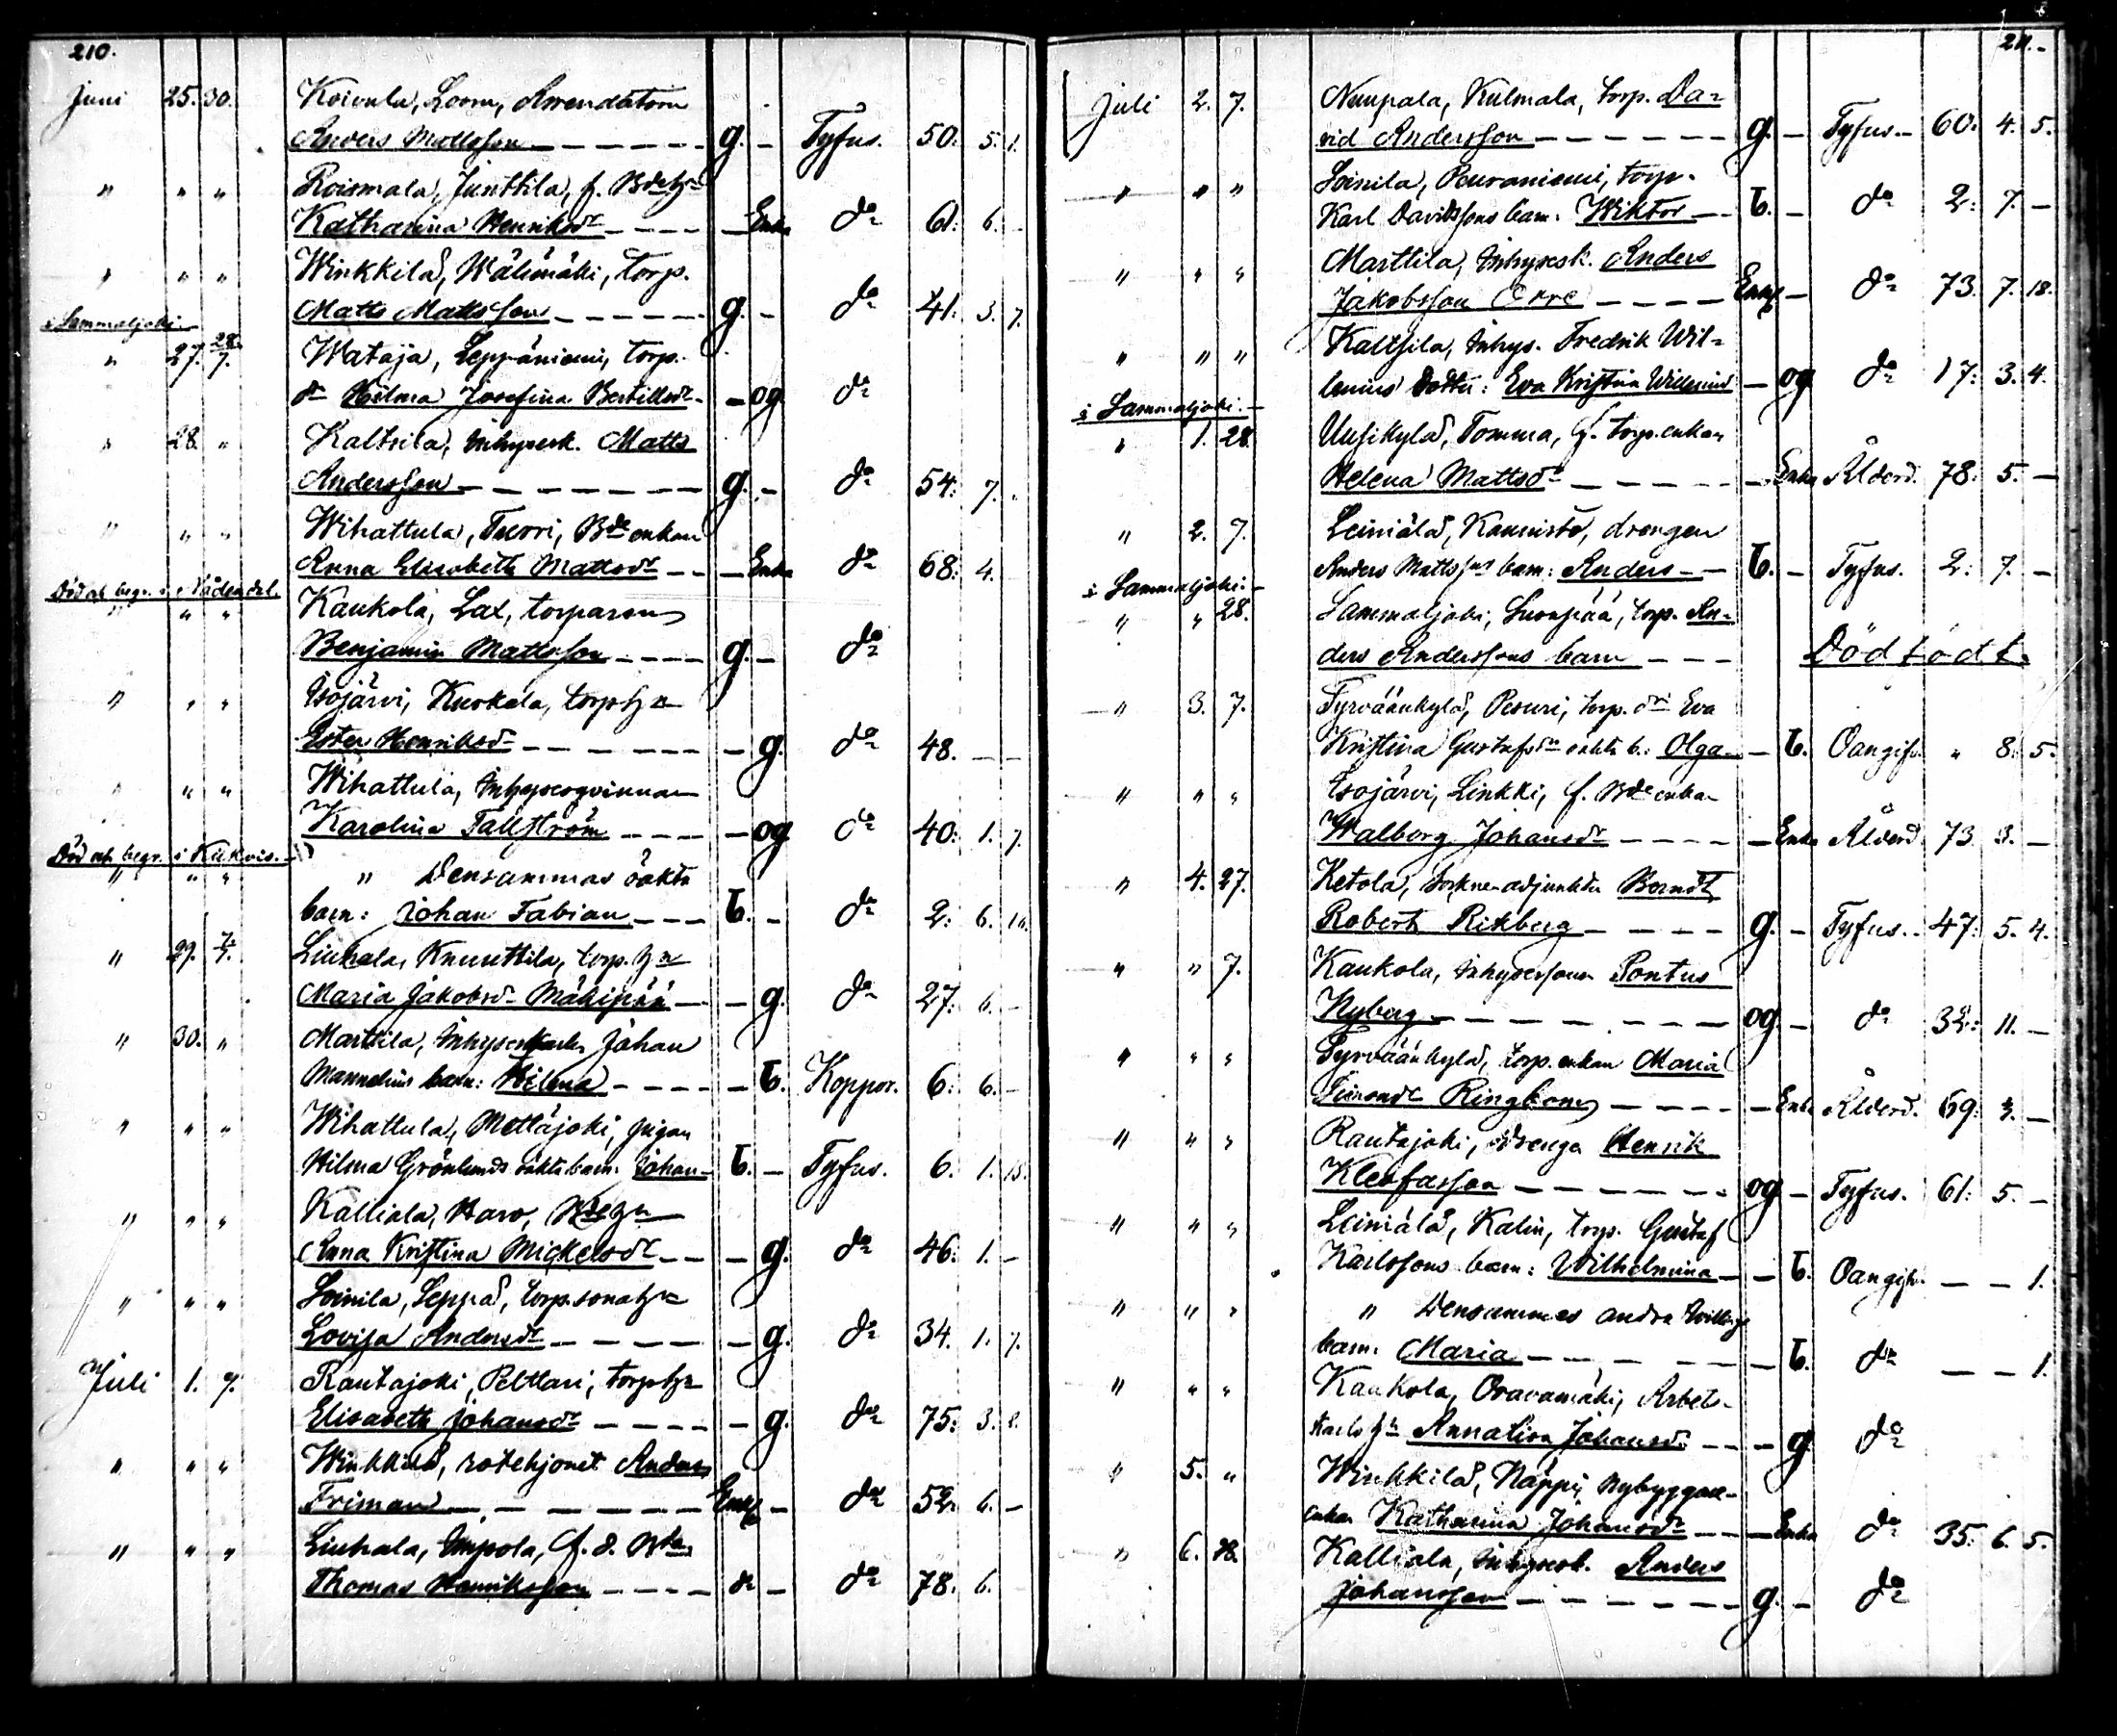 210.
Juni 25. 30. Koivula, Loom, Arrendatorn
Anders Mattsson - - - - - g. - Tyfus. 50. 5. 1.
" " " Roismala, Junttila, f. Bdehu
Katharina Henriksdr - - - - - Enka do 61. 6. -
" " " Winkkilä, Wälimäki, torp.
Matts Mattsson - - - - - g. - do 41. 3. 7.
i Sammaljoki. -
" 27. 28/7. Wataja, Leppäniemi, torp.
dr Hilma Josefina Bertilsdr - - og do
" 28. " Kaltsila, Inhysesk. Matts
Andersson - - - - - - g. - do 54. 7. .
" " " Wihattula, Tuori, Bde enkan
Anna Elisabeth Mattsdr - - - Enka do 68. 4. -
Död och begr. i Nådendal.
" " " Kaukola, Lax, torparen
Benjamin Mattsson - - - - g. - do
" " " Isojärvi, Kuokala, torp.hu
Ester Henriksdr - - - - - - - g. do 48. - -
" " " Wihattula, Inhysesqvinnan
Karolina Tallström - - - - - og do 40. 1. 7.
Död och begr. i Kiikois. -
" " " " Densammas oäkta
barn: Johan Fabian - - - b. - do 2. 6. 10.
" 29. 7/7. Liuhala, Knuuttila, torp. hu
Maria Jakobsdr Mäkipää - - g. do 27. 6. -
" 30. " Marttila, Inhyseskarln Johan
Mannelins barn: Hilma - - - - - b. Koppor. 6. 6. -
" " " Wihattula, Mettäjoki, pigan
Hilma Grönlunds oäkta barn: Johan - b. - Tyfus. 6. 1. 15.
" " " Kalliala, Haro, Bdehu
Anna Kristina Mickelsdr - - - g. do 46. 1. -
" " " Soinila, Leppä, torp. sonahu
Lovisa Andersdr - - - - - - g. do 34. 1. 7.
Juli 1. 7. Rautajoki, Pelttari, torp.hu
Elisabeth Johansdr - - - - - g. do 75. 3. 2.
" " " Winkkilä, rotehjonet Anders
Friman - - - - - - - Enkl. - do 52. 6. -
" " " Liuhala, Impola, f. d. Bden
Thomas Henriksson - - - - do - do 78. 6.
211.
Juli 2. 7. Nuupala, Kulmala, torp. Da-
vid Andersson - - - - - - g. - Tyfus. - 60. 4. 5.
" " " Soinila, Peuraniemi, torp.
Karl Davidssons barn: Wiktor - - b. - do 2. 7. -
" " " Marttila, Inhysesk. Anders
Jakobsson Orre - - - - Enkl. - do 73. 7. 18.
" " " Kaltsila, Inhys. Fredrik Wil-
lenius dotter: Eva Kristina Willenius - og do 17. 3. 4.
i Sammaljoki. -
" 1. 28. Uusikylä, Tomma, f. torp. enkan
Helena Mattsdr - - - - - - Enka Ålderd. 78. 5. -
" 2. 7. Leiniälä, Kaunisto, drengen
Anders Mattssons barn: Anders - - b. - Tyfus. 2. 7. -
i Sammaljoki. -
" " 28. Sammaljoki, Suonpää, torp. An-
ders Anderssons barn - - - Dödfödt.
" 3. 7. Tyrväänkylä, Pesuri, torp. dri Eva
Kristina Gustafsdr oäkta b.: Olga - - b. Oangifv. " 8. 5.
" " " Isojärvi, Linkki, f. Bde enkan
Walborg Johansdr - - - - - Enka Ålderd. 73. 3. -
" 4. 27. Ketola, sockneadjunkten Berndt
Robert Rikberg - - - - - g. - Tyfus. - 47. 5. 4.
" " 7. Kaukola, Inhysessonen Pontus
Nyberg - - - - - - - og - do 32. 11. -
" " " Tyrväänkylä, torp. enkan Maria
Simonsdr Ringbom - - - - - Enka Ålderd. 69. 3. -
" " " Rautajoki, drenge Henrik
Kleofasson - - - - - - og - Tyfus. 61. 5. -
" " " Leiniälä, Kalin, torp. Gustaf
Karlssons barn: Wilhelmina - - b. Oangifv. - - 1.
" " " " Densammes andra tvillinge
barn: Maria - - - - - b. do - - 1.
" " " Kaukola, Oravamäki, Arbets-
karls hu Annalisa Johansdr - - - g. do
" 5. " Winkkilä, Näppi, Nybyggare-
enkan Katharina Johansdr - - - Enka do 35. 6. 5.
" 6. 28. Kalliala, Inhysesk. Anders
Johansson - - - - - - g. - do